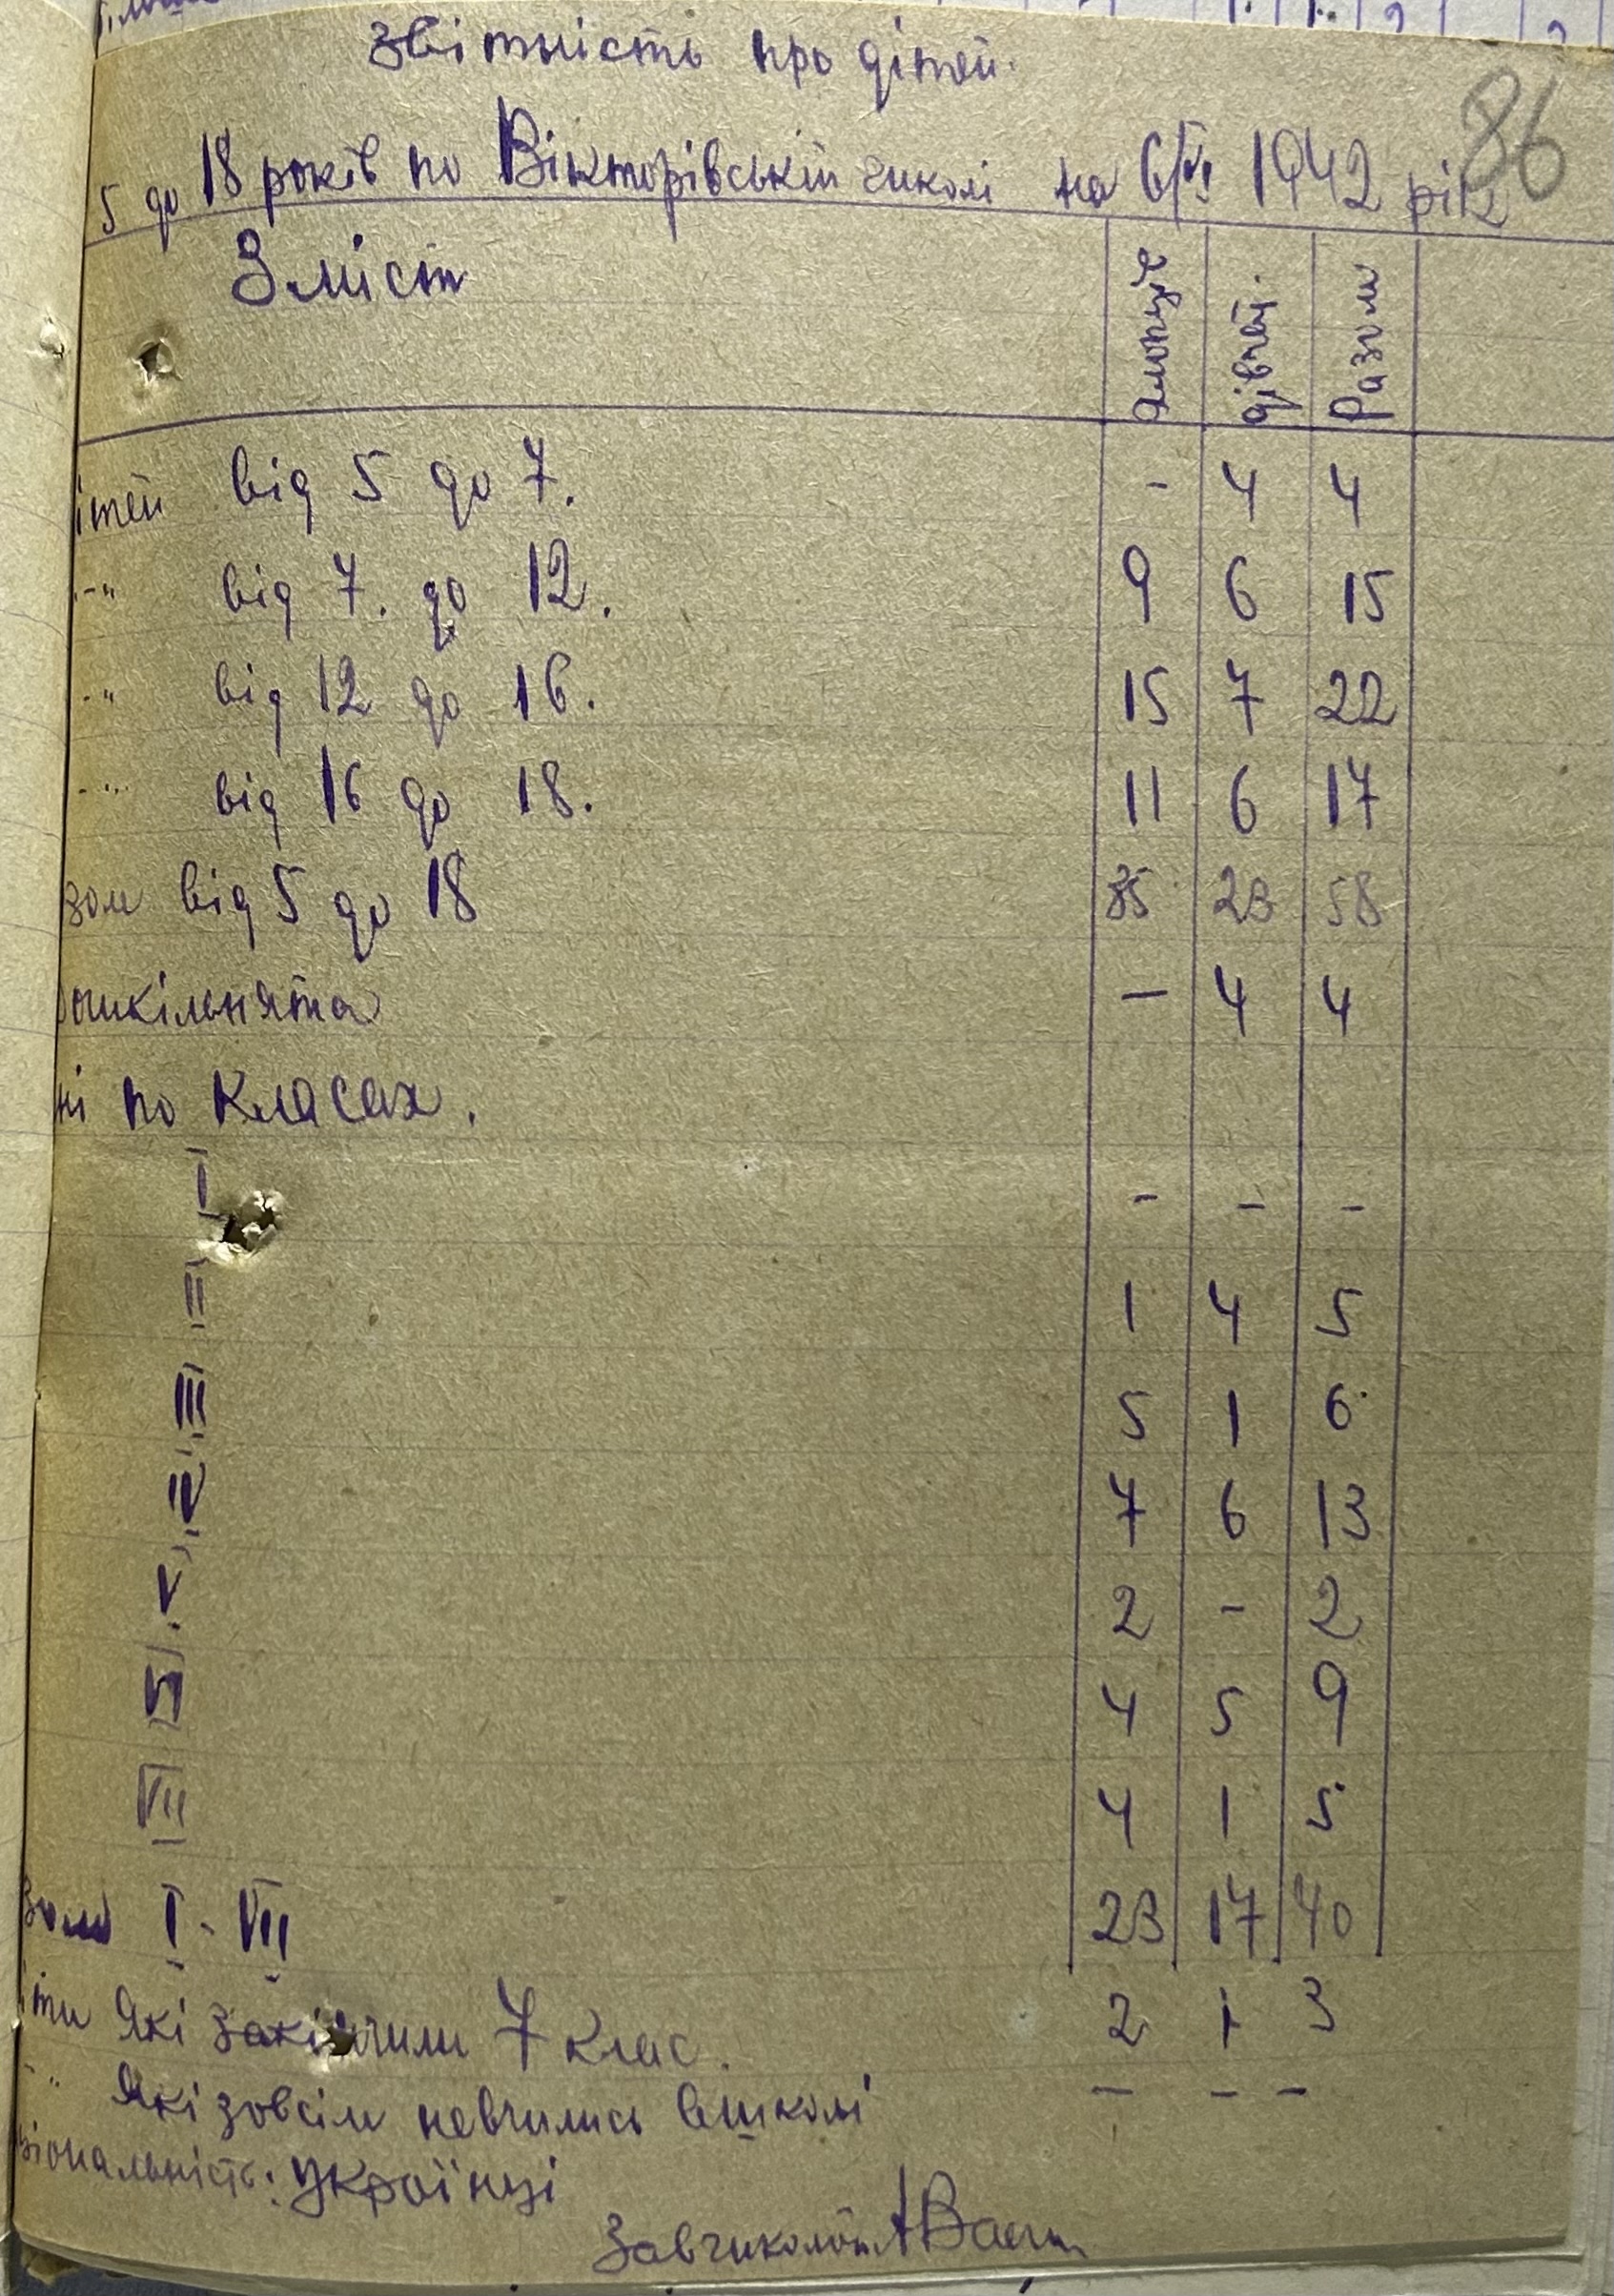 86
Звітність про дітей.
5 до 18 років по Вікторівській школі на 6/VI 1942 рік
Зміст хлопців дівчат. Разом
ітей від 5 до 7. - 4 4
-"- від 7. до 12. 9 6 15
-"- від 12 до 16. 15 7 22
-"- від 16 до 18. 11 6 17
зом від 5 до 18 35 23 58
ошкільнята — 4 4
ні по класах.
I - - -
II 1 4 5
III 5 1 6
IV 7 6 13
V 2 - 2
VI 4 5 9
VII 4 1 5
зом I - VII 23 17 40
іти які закінчили 7 клас. 2 1 3
-"- які зовсім невчились вшколі — - -
ціональність: українці
Завшколою